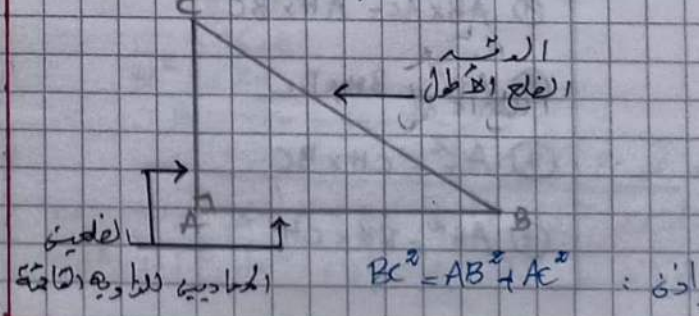 C
الوتر
الضلع الأطول
A
B
الضلعين
المحاذيين للزاوية القائمة
اذن : BC² = AB² + AC²